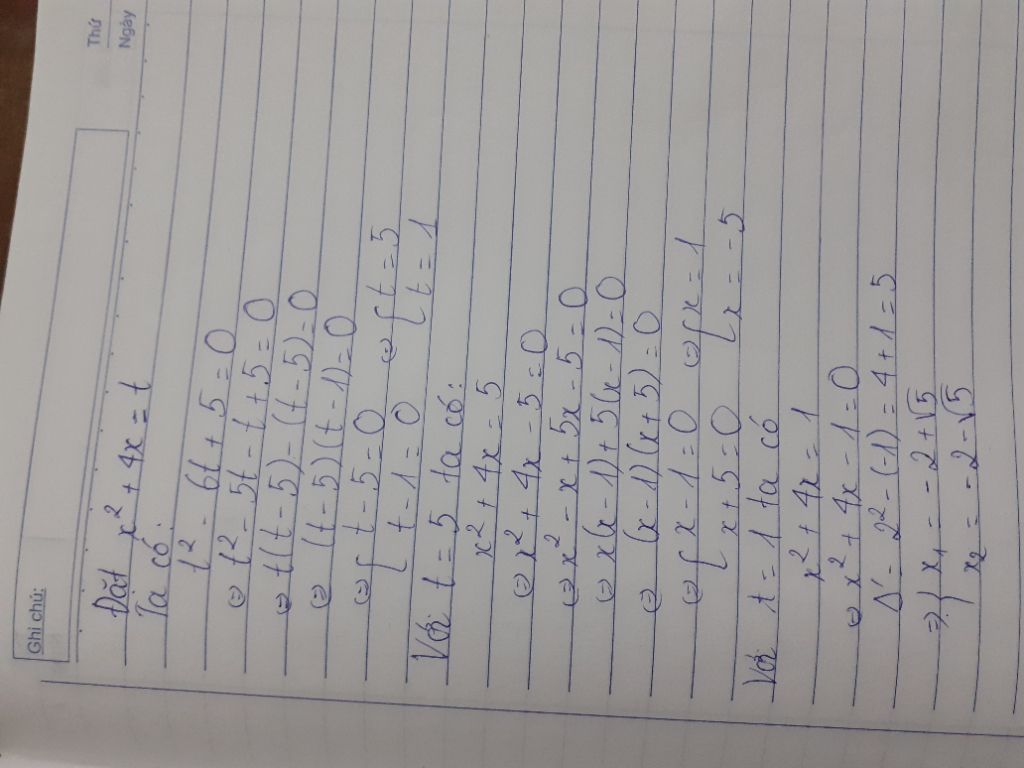 Ghi chú:
Thứ
Ngày
Đặt x² + 4x = t
Ta có:
t² - 6t + 5 = 0
⇔ t² - 5t - t + 5 = 0
⇔ t(t - 5) - (t - 5) = 0
⇔ (t - 5)(t - 1) = 0
⇔ [ t - 5 = 0 ⇔ [ t = 5
t - 1 = 0 t = 1
Với t = 5 ta có:
x² + 4x = 5
⇔ x² + 4x - 5 = 0
⇔ x² - x + 5x - 5 = 0
⇔ x(x - 1) + 5(x - 1) = 0
⇔ (x - 1)(x + 5) = 0
⇔ [ x - 1 = 0 ⇔ [ x = 1
x + 5 = 0 x = -5
Với t = 1 ta có
x² + 4x = 1
⇔ x² + 4x - 1 = 0
Δ' = 2² - (-1) = 4 + 1 = 5
⇒ { x₁ = -2 + √5
x₂ = -2 - √5